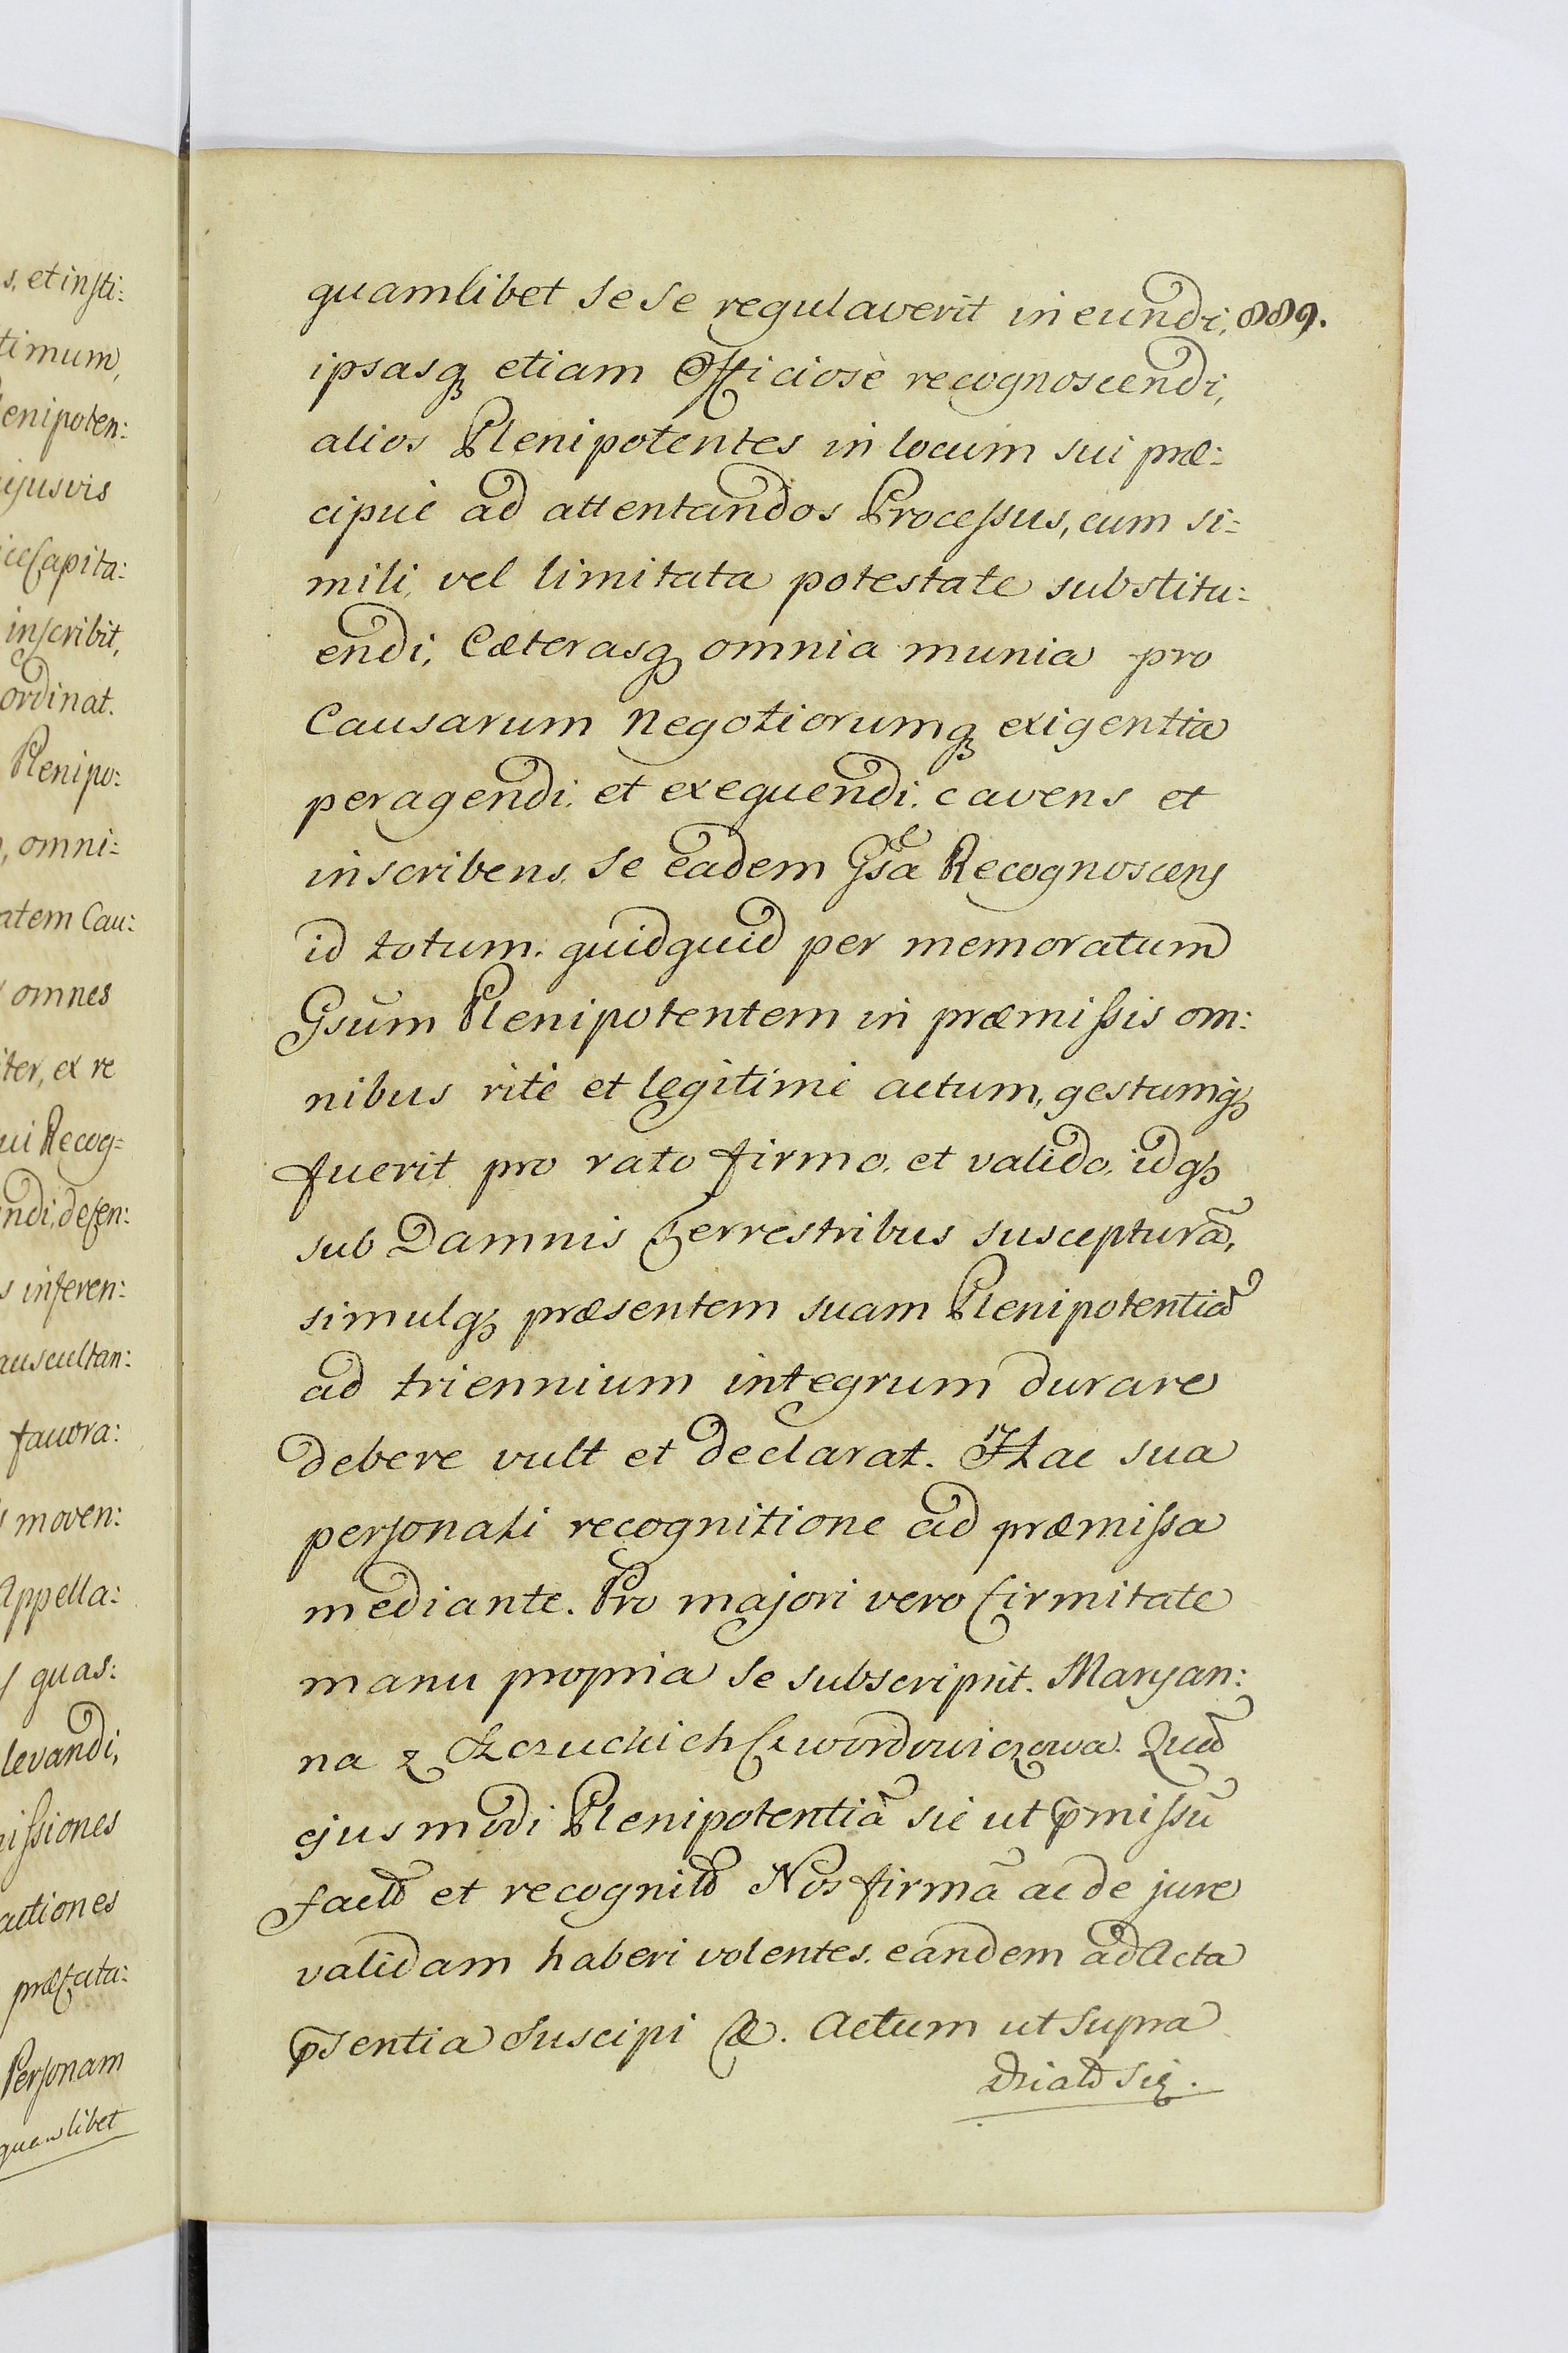 s, et insti:
timum,
lenipoten:
ujusvis
iceCapita:
inscribit,
ordinat.
Plenipo:
, omni:
atem Cau:
omnes
iter, ex re
ui Recog=
ndi, defen:
s inferen:
auscultan:
favora:
moven:
Appella:
quas:
levandi,
issiones
actiones
præfata:
Personam
quamlibet
quamlibet sese regulaverit ineundi, 889.
ipsasq̃ etiam Officiosè recognoscendi,
alios Plenipotentes in locum sui præ:
cipuè ad attentandos Processus, cum si:
mili, vel limitata potestate substitu:
endi, Cæterasq̃ omnia munia pro
Causarum negotiorumq̃ exigentia
peragendi, et exequendi, cavens et
inscribens, Se eadem Gsã Recognoscens
id totum, quidquid per memoratum
Gsũm Plenipotentem in præmissis om:
nibus ritè et legitimè actum, gestumq̃
fuerit pro rato firmo, et valido, idq̃
sub Damnis Terrestribus suscepturã,
simulq̃ præsentem suam Plenipotentiã
ad triennium integrum durare
debere vult et declarat. Hac sua
personali recognitione ad præmissa
mediante. Pro majori vero firmitate
manu propria Se subscripsit. Maryan:
na z
ejusmodi Plenipotentiã sic ut p̃missũ
et Nos firmã ac de jure
validam haberi volentes, eandem ad Acta
p̃sentia Suscipi &. Actum ut Supra